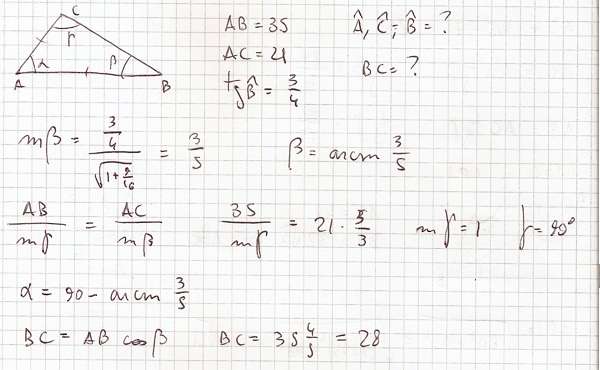 C
γ
α
β
A
B
AB = 35
AC = 21
tg B̂ = 3/4
Â, Ĉ, B̂ = ?
BC = ?
sin β = (3/4)/√(1+9/16) = 3/5 β = arcsin 3/5
AB/sin γ = AC/sin β 35/sin γ = 21 · 5/3 sin γ = 1 γ = 90°
α = 90 - arcsin 3/5
BC = AB cos β BC = 35 4/5 = 28